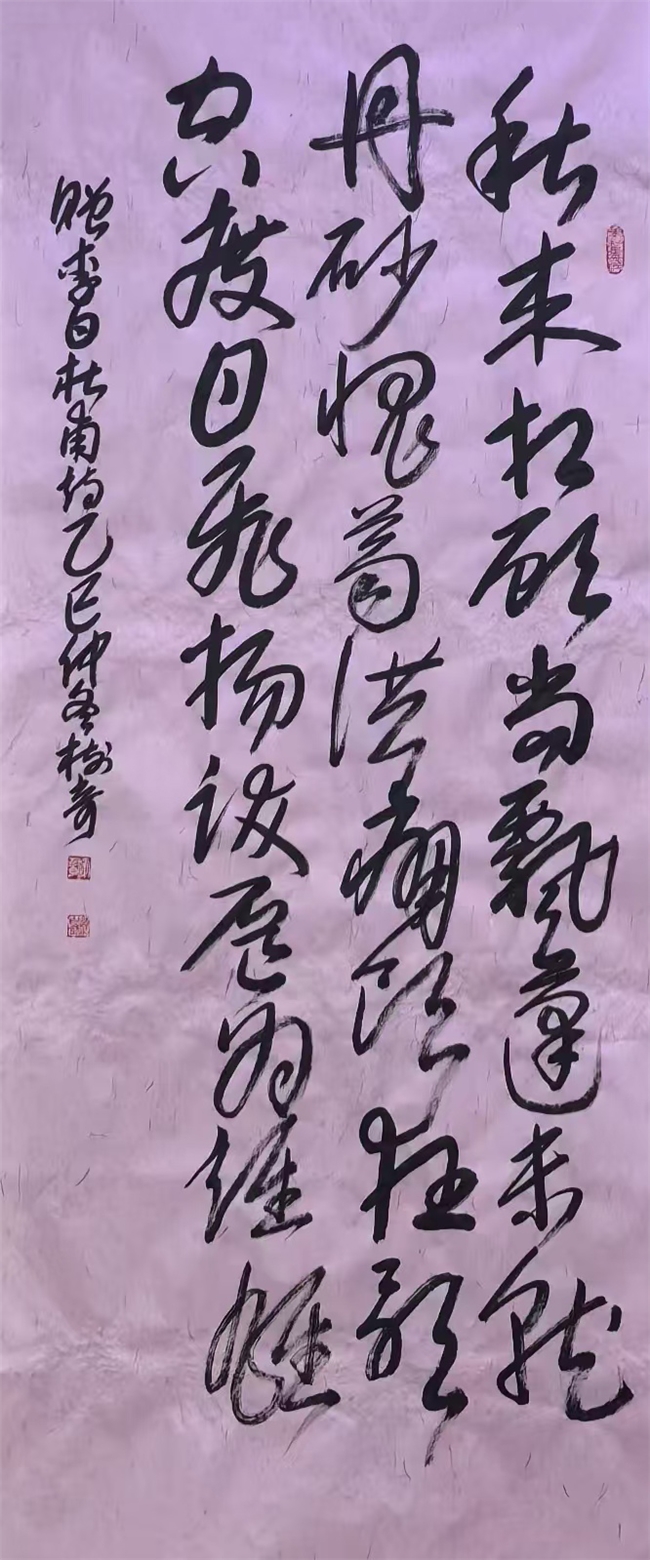 秋来相顾尚飘蓬未就
丹砂愧葛洪痛饮狂歌
空度日飞扬跋扈为谁雄
赠李白杜甫诗乙巳仲冬树奇